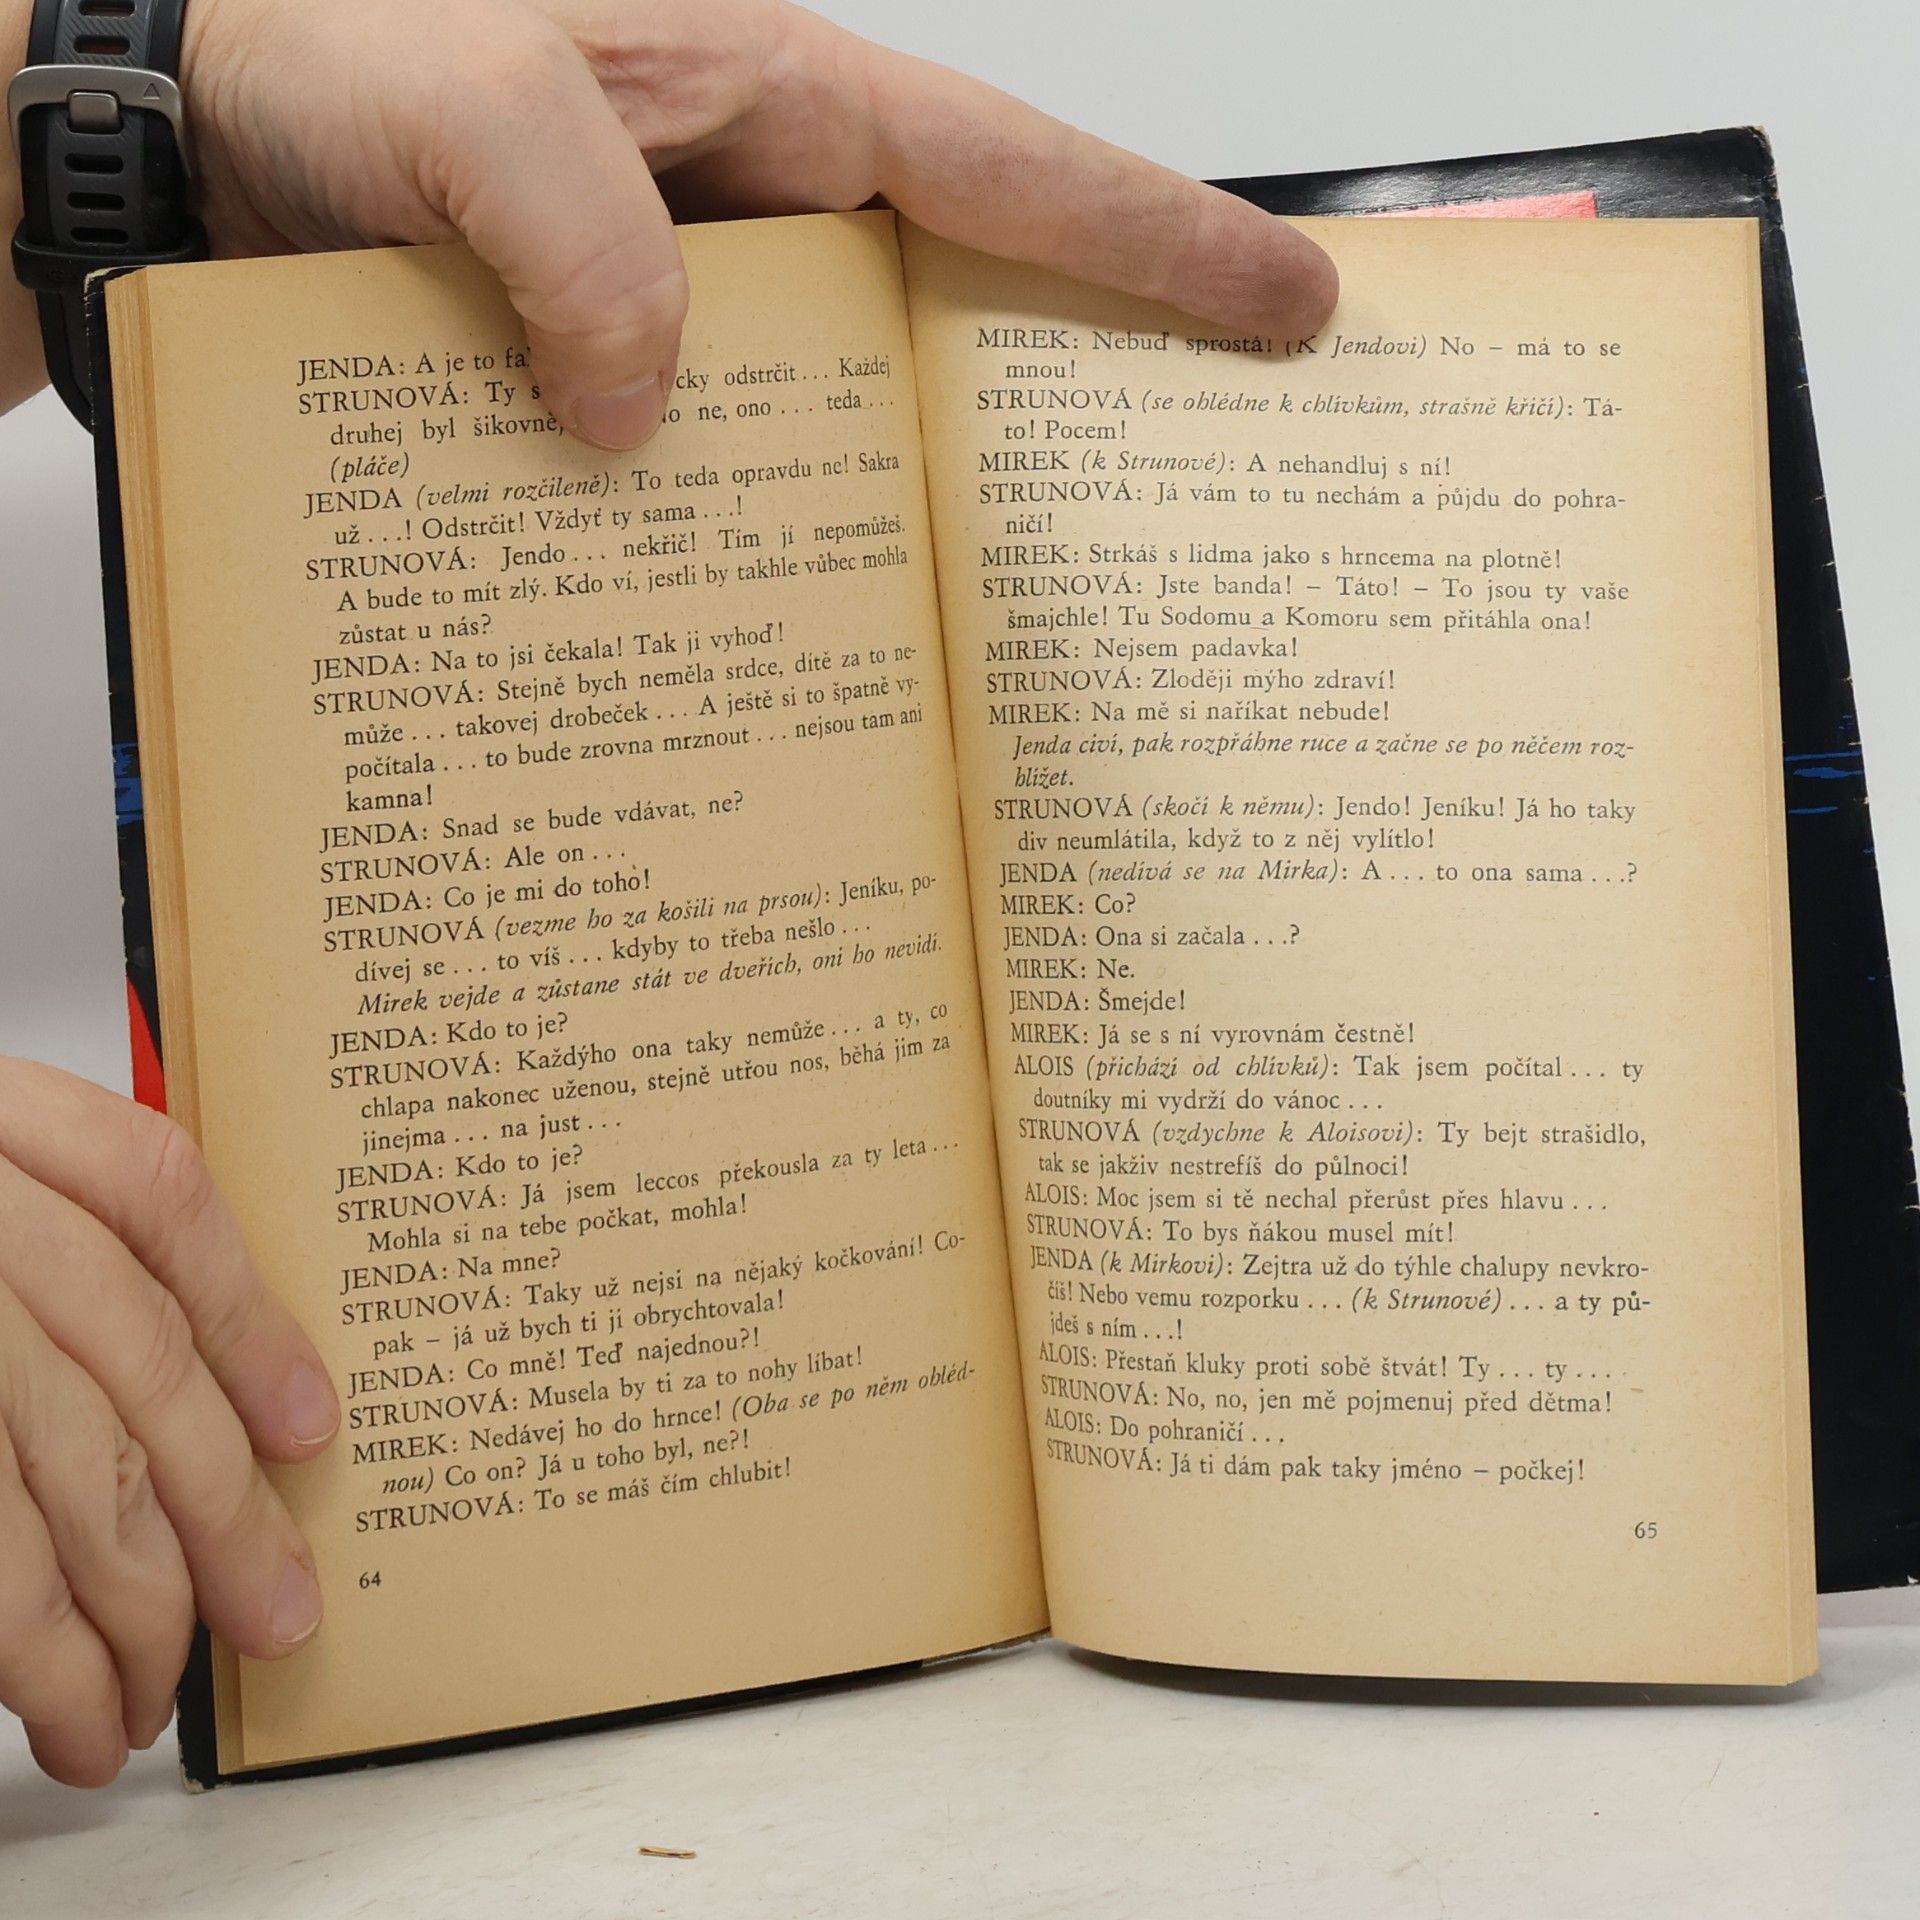 JENDA: A je to
STRUNOVÁ: Ty odstrčit... Každej
druhej byl šikovně, ne, ono ... teda ...
(pláče)
JENDA (velmi rozčileně): To teda opravdu ne! Sakra
už ...! Odstrčit! Vždyť ty sama ...!
STRUNOVÁ: Jendo ... nekřič! Tím jí nepomůžeš.
A bude to mít zlý. Kdo ví, jestli by takhle vůbec mohla
zůstat u nás?
JENDA: Na to jsi čekala! Tak ji vyhoď!
STRUNOVÁ: Stejně bych neměla srdce, dítě za to ne-
může ... takovej drobeček ... A ještě si to špatně vy-
počítala ... to bude zrovna mrznout ... nejsou tam ani
kamna!
JENDA: Snad se bude vdávat, ne?
STRUNOVÁ: Ale on ...
JENDA: Co je mi do toho!
STRUNOVÁ (vezme ho za košili na prsou): Jeníku, po-
dívej se ... to víš ... kdyby to třeba nešlo ...
Mirek vejde a zůstane stát ve dveřích, oni ho nevidí.
JENDA: Kdo to je?
STRUNOVÁ: Každýho ona taky nemůže ... a ty, co
chlapa nakonec uženou, stejně utřou nos, běhá jim za
jinejma ... na just ...
JENDA: Kdo to je?
STRUNOVÁ: Já jsem leccos překousla za ty leta ...
Mohla si na tebe počkat, mohla!
JENDA: Na mne?
STRUNOVÁ: Taky už nejsi na nějaký kočkování! Co-
pak – já už bych ti ji obrychtovala!
JENDA: Co mně! Teď najednou?!
STRUNOVÁ: Musela by ti za to nohy líbat!
MIREK: Nedávej ho do hrnce! (Oba se po něm ohléd-
nou) Co on? Já u toho byl, ne?!
STRUNOVÁ: To se máš čím chlubit!
64
MIREK: Nebuď sprostá! (K Jendovi) No – má to se
mnou!
STRUNOVÁ (se ohlédne k chlívkům, strašně křičí): Tá-
to! Pocem!
MIREK (k Strunové): A nehandluj s ní!
STRUNOVÁ: Já vám to tu nechám a půjdu do pohra-
ničí!
MIREK: Strkáš s lidma jako s hrncema na plotně!
STRUNOVÁ: Jste banda! – Táto! – To jsou ty vaše
šmajchle! Tu Sodomu a Komoru sem přitáhla ona!
MIREK: Nejsem padavka!
STRUNOVÁ: Zloději mýho zdraví!
MIREK: Na mě si naříkat nebude!
Jenda civí, pak rozpřáhne ruce a začne se po něčem roz-
hlížet.
STRUNOVÁ (skočí k němu): Jendo! Jeníku! Já ho taky
div neumlátila, když to z něj vylítlo!
JENDA (nedívá se na Mirka): A ... to ona sama ...?
MIREK: Co?
JENDA: Ona si začala ...?
MIREK: Ne.
JENDA: Šmejde!
MIREK: Já se s ní vyrovnám čestně!
ALOIS (přichází od chlívků): Tak jsem počítal ... ty
doutníky mi vydrží do vánoc ...
STRUNOVÁ (vzdychne k Aloisovi): Ty bejt strašidlo,
tak se jakživ nestrefíš do půlnoci!
ALOIS: Moc jsem si tě nechal přerůst přes hlavu ...
STRUNOVÁ: To bys ňákou musel mít!
JENDA (k Mirkovi): Zejtra už do týhle chalupy nevkro-
číš! Nebo vemu rozporku ... (k Strunové) ... a ty pů-
jdeš s ním ...!
ALOIS: Přestaň kluky proti sobě štvát! Ty ... ty ....
STRUNOVÁ: No, no, jen mě pojmenuj před dětma!
ALOIS: Do pohraničí ...
STRUNOVÁ: Já ti dám pak taky jméno – počkej!
65